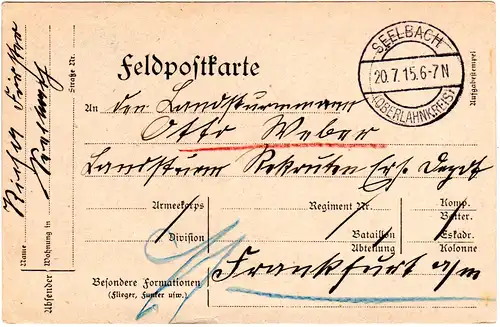 SEELBACH
20.7.15.6-7N
(OBERLAHNKREIS)
Aufgabestempel
Feldpostkarte
An den Landsturmmann
Otto Weber
Landsturm Rekruten Ers. Depot
Armeekorps
Regiment Nr.
Komp.
Batter.
Division
Bataillon
Abteilung
Eskadr.
Kolonne
Besondere Formationen
(Flieger, Funker usw.)
Frankfurt a/m
Absender
Name
Wohnung in Seelbach
Straße Nr.